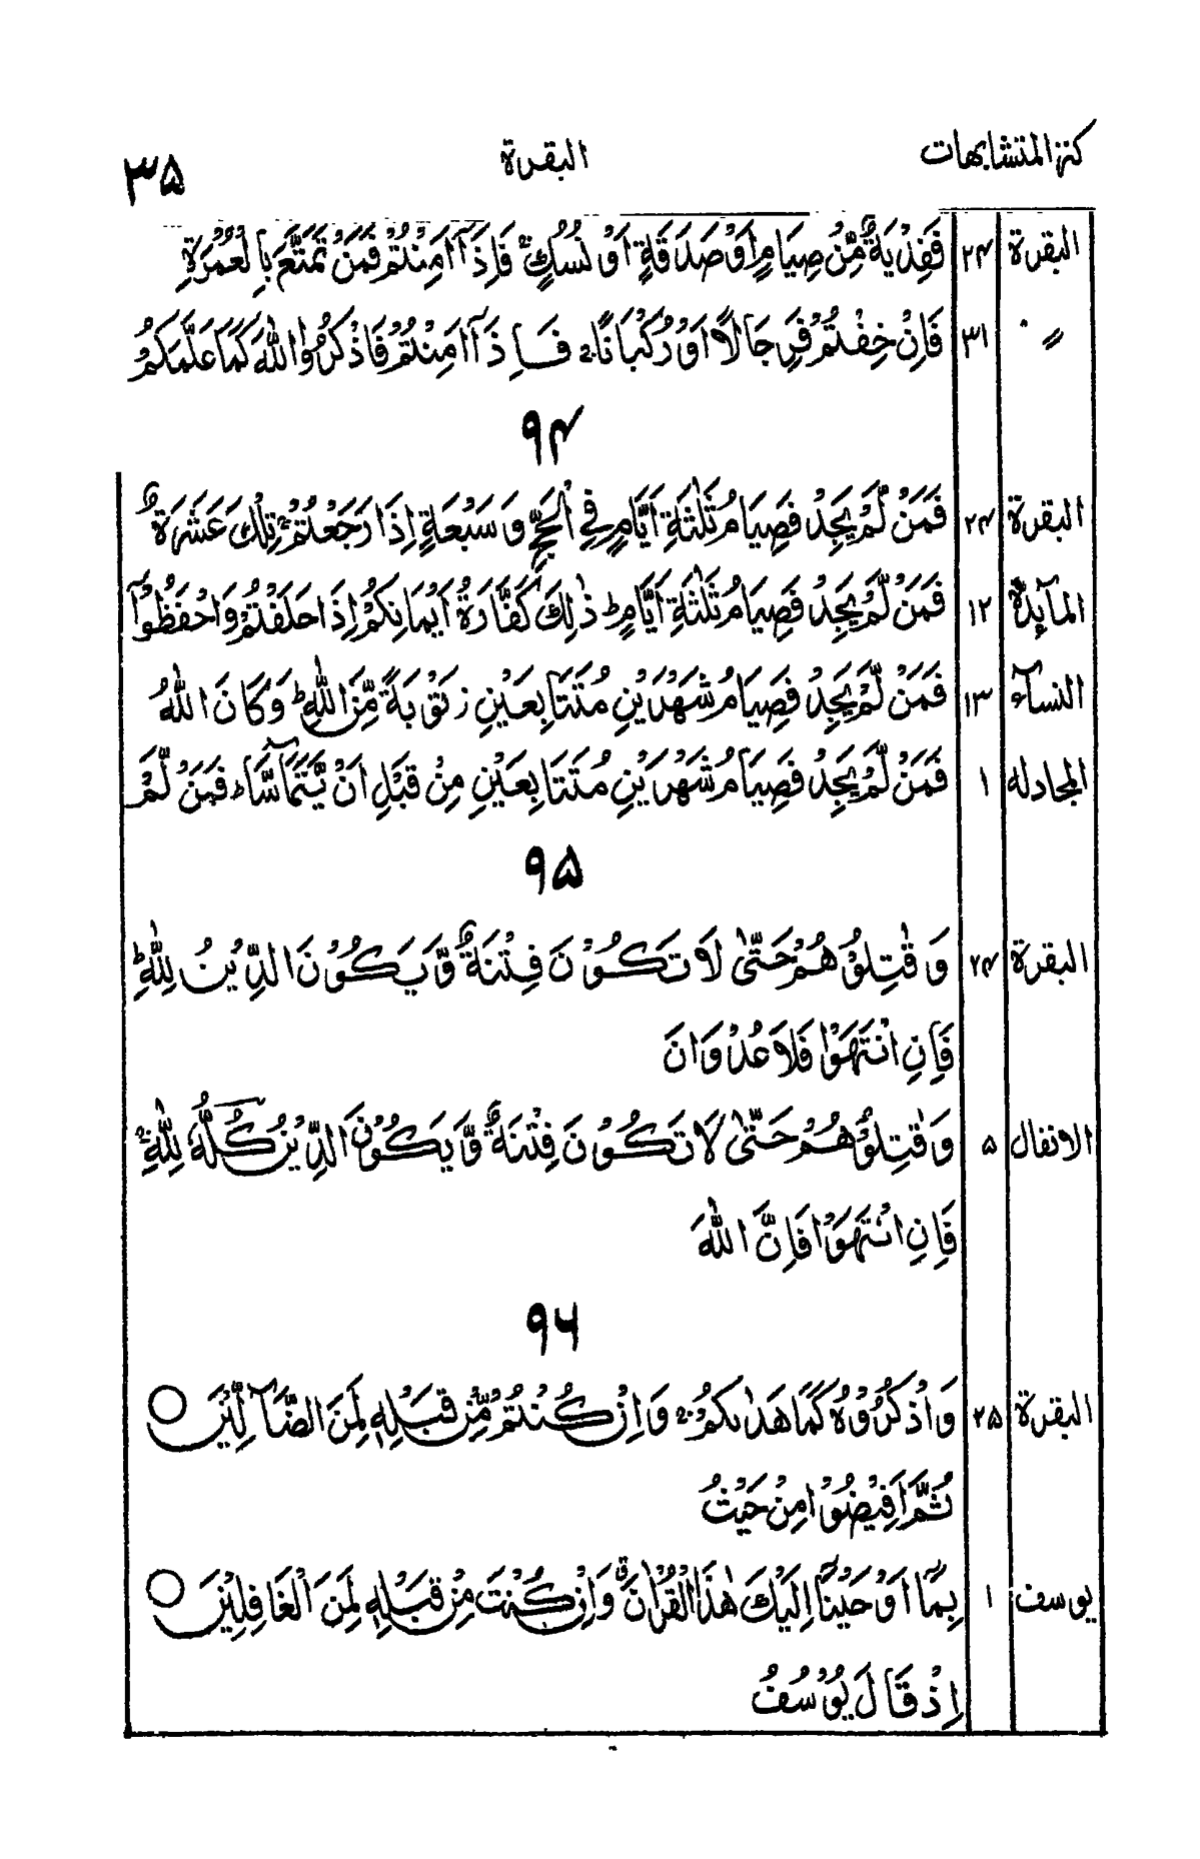 كنز المتشابهات البقرة ۳۵
البقرة ۲۴ فَفِدْيَةٌ مِّنْ صِيَامٍ اَوْ صَدَقَةٍ اَوْ نُسُكٍ ۚ فَاِذَآ اَمِنْتُمْ فَمَنْ تَمَتَّعَ بِالْعُمْرَةِ
〃 ۳۱ فَاِنْ خِفْتُمْ فَرِجَالًا اَوْ رُكْبَانًا ۚ فَاِذَآ اَمِنْتُمْ فَاذْكُرُوا اللّٰهَ كَمَا عَلَّمَكُمْ
۹۴
البقرة ۲۴ فَمَنْ لَّمْ يَجِدْ فَصِيَامُ ثَلٰثَةِ اَيَّامٍ فِي الْحَجِّ وَسَبْعَةٍ اِذَا رَجَعْتُمْ ۗ تِلْكَ عَشَرَةٌ
المآىِٕدة ۱۲ فَمَنْ لَّمْ يَجِدْ فَصِيَامُ ثَلٰثَةِ اَيَّامٍ ؕ ذٰلِكَ كَفَّارَةُ اَيْمَانِكُمْ اِذَا حَلَفْتُمْ وَاحْفَظُوْٓا
النسآء ۱۳ فَمَنْ لَّمْ يَجِدْ فَصِيَامُ شَهْرَيْنِ مُتَتَابِعَيْنِ ز تَوْبَةً مِّنَ اللّٰهِ ؕ وَكَانَ اللّٰهُ
المجادلة ۱ فَمَنْ لَّمْ يَجِدْ فَصِيَامُ شَهْرَيْنِ مُتَتَابِعَيْنِ مِنْ قَبْلِ اَنْ يَّتَمَآسَّا ؕ فَمَنْ لَّمْ
۹۵
البقرة ۲۴ وَقٰتِلُوْهُمْ حَتّٰى لَا تَكُوْنَ فِتْنَةٌ وَّيَكُوْنَ الدِّيْنُ لِلّٰهِ ؕ
فَاِنِ انْتَهَوْا فَلَا عُدْوَانَ
الانفال ۵ وَقٰتِلُوْهُمْ حَتّٰى لَا تَكُوْنَ فِتْنَةٌ وَّيَكُوْنَ الدِّيْنُ كُلُّهٗ لِلّٰهِ ۚ
فَاِنِ انْتَهَوْا فَاِنَّ اللّٰهَ
۹۶
البقرة ۲۵ وَاذْكُرُوْهُ كَمَا هَدٰىكُمْ ۚ وَاِنْ كُنْتُمْ مِّنْ قَبْلِهٖ لَمِنَ الضَّآلِّيْنَ ○
ثُمَّ اَفِيْضُوْا مِنْ حَيْثُ
يوسف ۱ بِمَآ اَوْحَيْنَآ اِلَيْكَ هٰذَا الْقُرْاٰنَ ۖ وَاِنْ كُنْتَ مِنْ قَبْلِهٖ لَمِنَ الْغَافِلِيْنَ ○
اِذْ قَالَ يُوْسُفُ